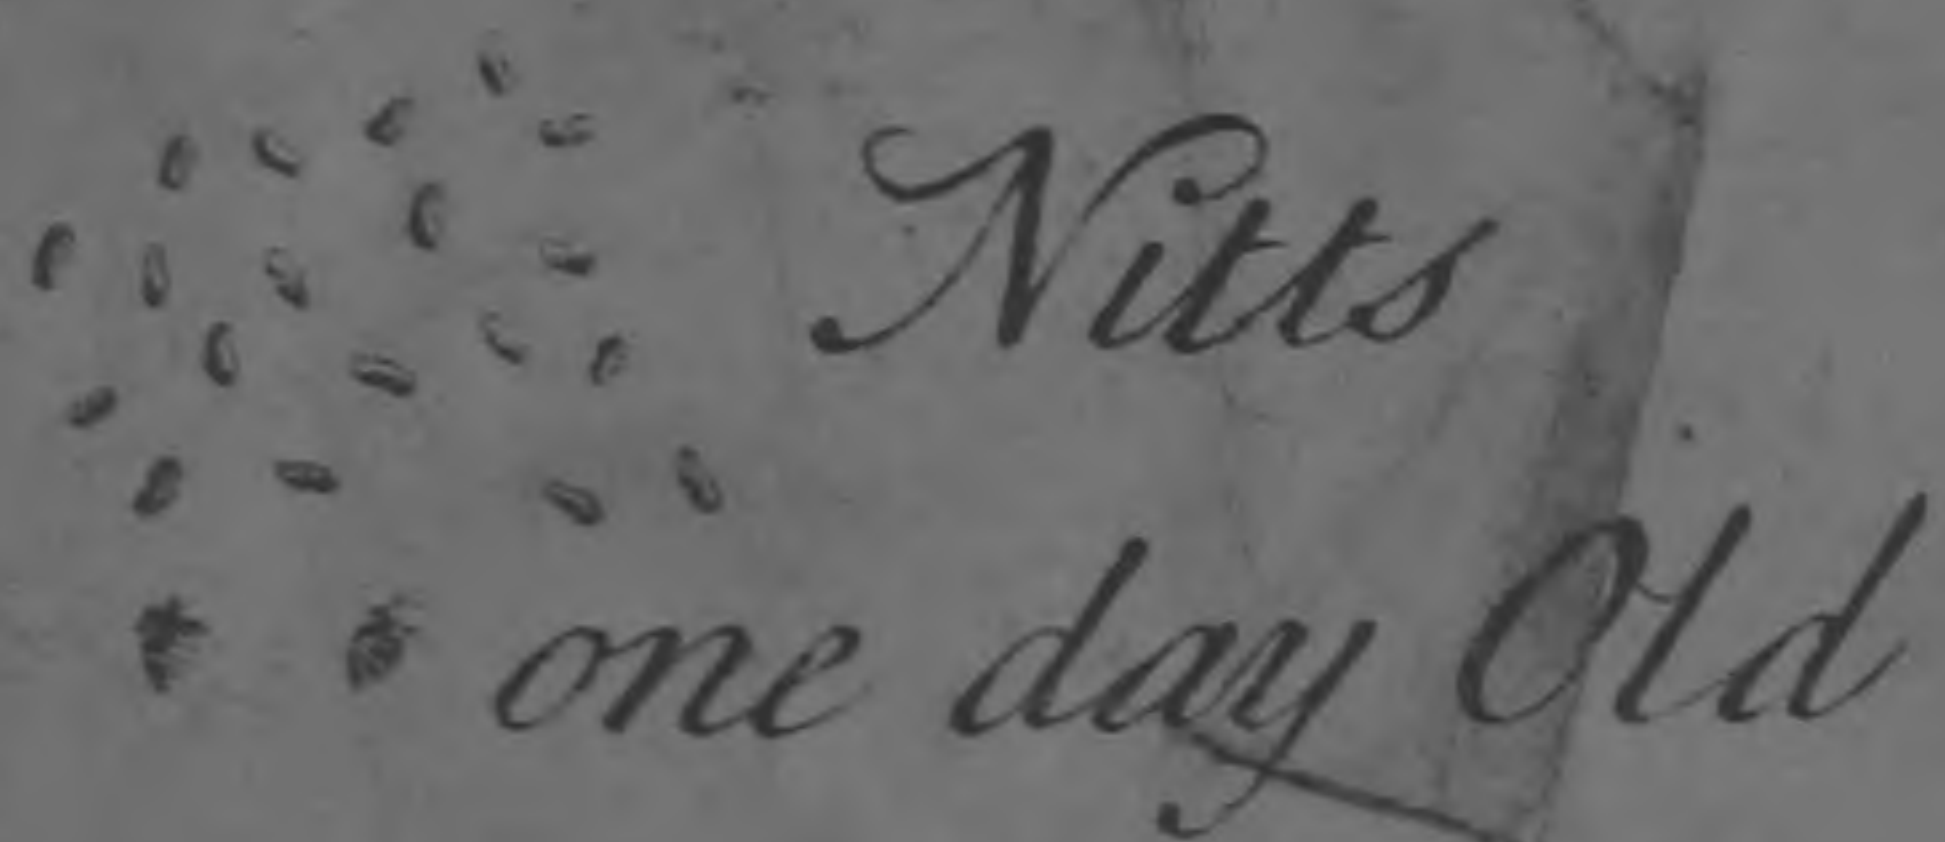 Nitts
one day Old